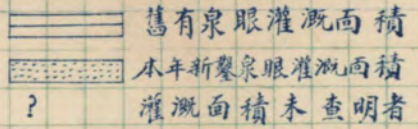 舊有泉眼灌溉面積
本年新鑿泉眼灌溉面積
? 灌溉面積未查明者